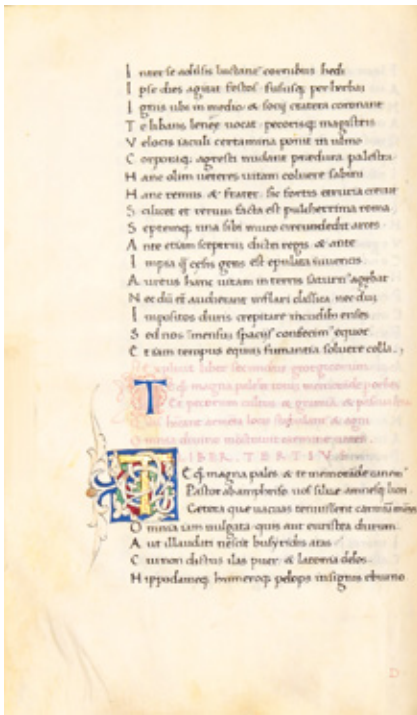 I nter se adversis luctant cornibus hedi
I pse dies agitat festos fususq per herbas
I gnis ubi in medio & socij cratera coronant
T e libans lenee vocat pecorisq magistris
V elocis iaculi certamina ponit in ulmo
C orporaq agresti nudant praedura palestra
H anc olim veteres vitam coluere sabini
H anc remus & frater sic fortis etruria crevit
S cilicet et rerum facta est pulcherrima roma
S eptemq una sibi muro circundedit arces
A nte etiam sceptrum dictei regis & ante
I mpia q cesis gens est epulata iuvencis
A ureus hanc vitam in terris saturn agebat
N ec dum et audierant inflari classica nec dum
I mpositos duris crepitare incudibus enses
S ed nos inmensum spacijs confecim equor
E t iam tempus equum fumantia solvere colla
Explicit liber secundus georgicorum
T e q magna pales
LIBER TERTIVS
T E q magna pales & te memorande canem
Pastor ab ampheriso vos silve amnesq licei
Cetera que vacuas tenuissent carmina mentes
O mnia iam vulgata quis aut euristea durum
A ut illaudati nescit busyridis aras
C ui non dictus ilas puer & latonia delos
H ippodameq humeroq pelops insignis eburno